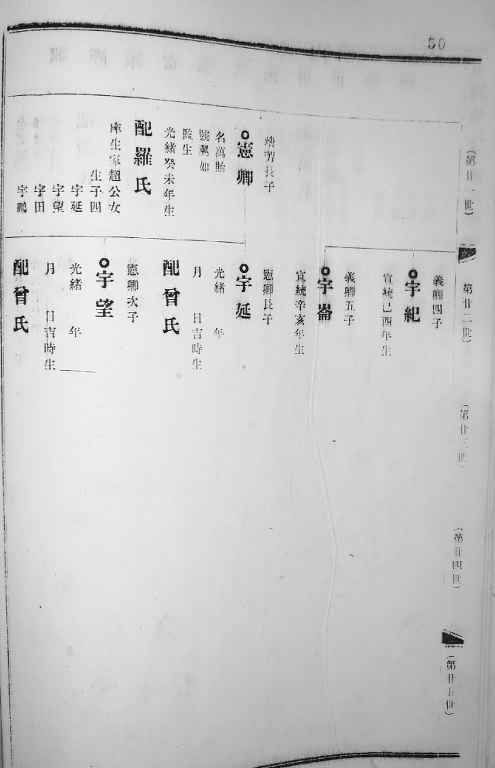 50
(第廿一世)
第廿二世)
(第廿三世
(第廿四世)
(第廿五世)
芳長子
憲卿
名萬貽
監生
光緒癸未年生
配羅氏
庠生家超公女
生子四
宇延
宇望
宇田
宇鵬
義卿四子
宇紀
宣統己酉年生
義卿五子
宇崙
宣統辛亥年生
憲卿長子
宇延
光緒 年
月 日吉時生
配曾氏
憲卿次子
宇望
光緒 年
月 日吉時生
配曾氏